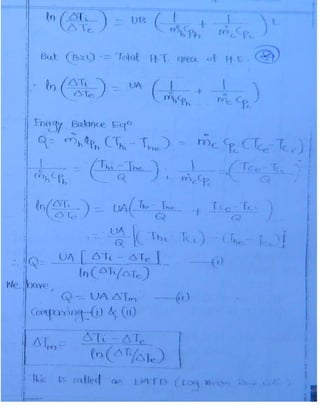 ln (ΔTi / ΔTe) = UB (1 / ṁhCph + 1 / ṁcCpc) L
But (B×L) = Total H.T. area of H.E.
∴ ln (ΔTi / ΔTe) = UA (1 / ṁhCph + 1 / ṁcCpc)
Energy Balance Eqn
Q = ṁhCph (Thi - The) = ṁcCpc (Tce - Tci)
1 / ṁhCph = (Thi - The / Q) , 1 / ṁcCpc = (Tce - Tci / Q)
ln (ΔTi / ΔTe) = UA (Thi - The / Q + Tce - Tci / Q)
= UA / Q [(Thi - Tci) - (The - Tce)]
∴ Q = UA [ΔTi - ΔTe] / ln (ΔTi/ΔTe) —(i)
We have,
Q = UA ΔTm —(ii)
Comparing (i) & (ii)
ΔTm = ΔTi - ΔTe / ln (ΔTi/ΔTe)
This is called as LMTD (Log Mean